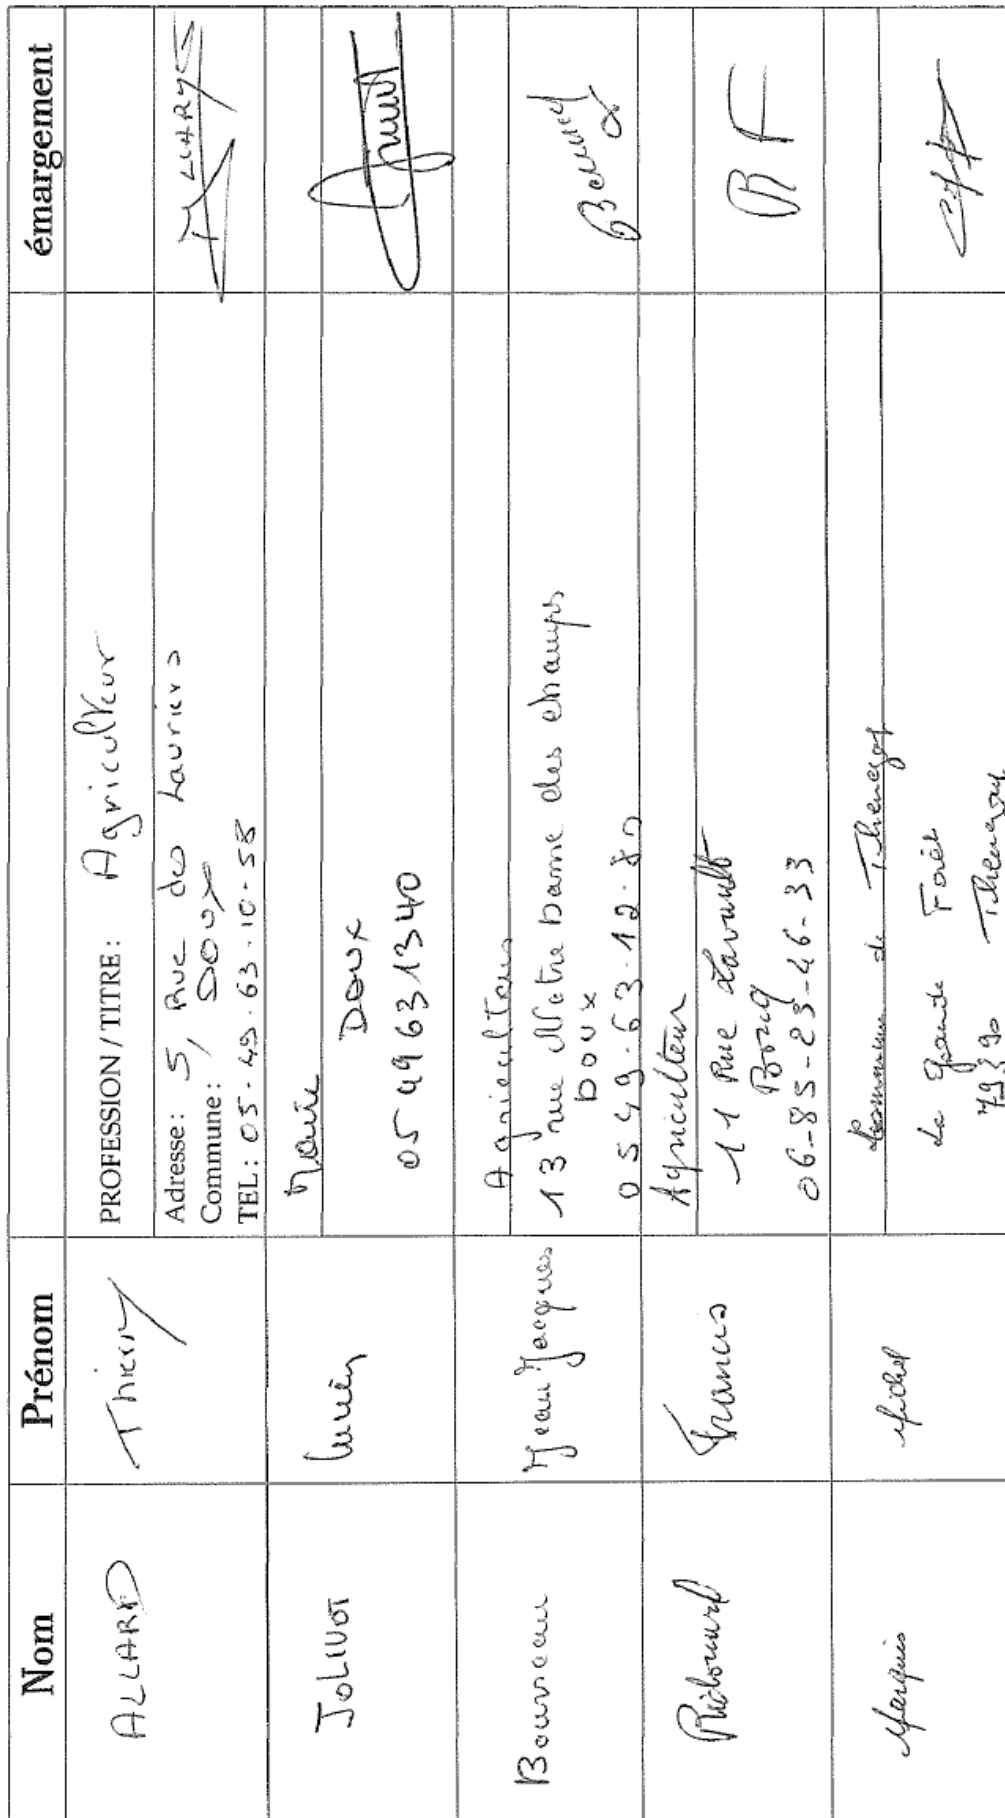 Nom Prénom émargement
ALLARD Thierry PROFESSION / TITRE : Agriculteur
Adresse : 5, Rue des Lauriers
Commune : DOUX
TEL : 05-49.63.10-58
ALLARD
JOLIVOT Lucien Mairie
DOUX
05 49 63 13 40
Bonneau Jean Jacques Agriculteur
13 rue Notre Dame des champs
DOUX
05 49.63.12.80
Francis Agriculteur
11 Rue
06-85-23-46-33
RF
Marquis Michel Commune de Thenezay
La Grande Forêt
79390 Thenezay